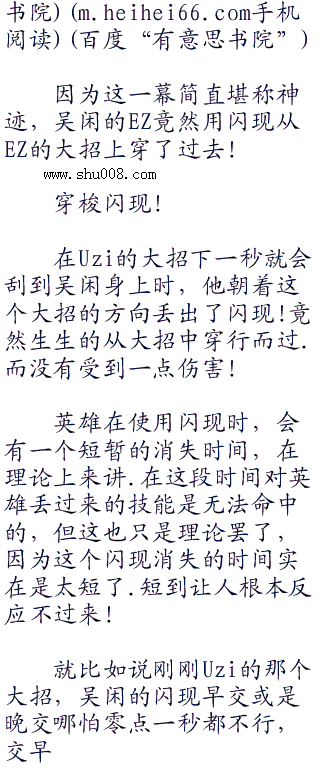 书院) (m.heihei66.com手机
阅读) (百度“有意思书院”)
因为这一幕简直堪称神
迹，吴闲的EZ竟然用闪现从
EZ的大招上穿了过去!
www.shu008.com
穿梭闪现!
在Uzi的大招下一秒就会
刮到吴闲身上时，他朝着这
个大招的方向丢出了闪现!竟
然生生的从大招中穿行而过.
而没有受到一点伤害!
英雄在使用闪现时，会
有一个短暂的消失时间，在
理论上来讲.在这段时间对英
雄丢过来的技能是无法命中
的，但这也只是理论罢了，
因为这个闪现消失的时间实
在是太短了.短到让人根本反
应不过来!
就比如说刚刚Uzi的那个
大招，吴闲的闪现早交或是
晚交哪怕零点一秒都不行，
交早